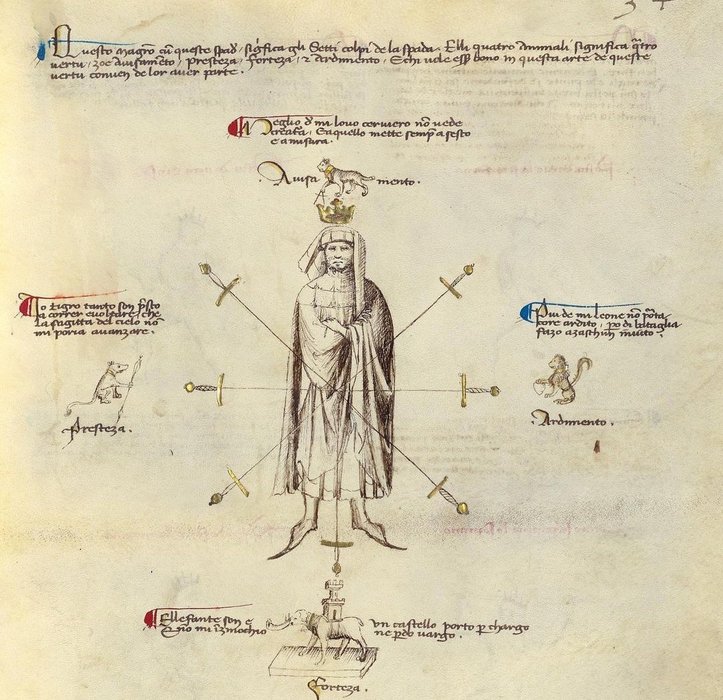 Questo magro cum queste spade significa gli Setti colpi de la spada. Elli quatro animali significa q̃tro
vertu, zoe avisamẽto, presteza, forteza, & ardimento, E chi vole ess̃ bono in questa arte de queste
vertu conven de lor aver parte.
Meglio de mi lovo cerviero nõ vede
creatura, Eaquello mette sempre a sesto
e a misura.
Avisamento.
Io tigro tanto son p̃sto
a correr e voltare, che
la sagitta del cielo nõ
mi poria avanzare.
Più de mi leone nõ porta
core ardito, però di bataglia
fazo a zaschun invito.
Presteza.
Ardimento.
Ellefante son e
un castello porto per chargo
ne perdo vargo.
Forteza.